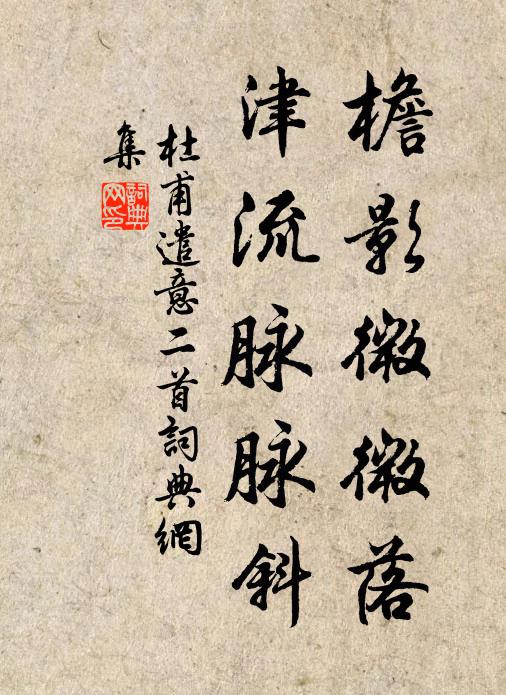 檐影微微落
津流脉脉斜
杜甫遣意二首詞典網
集
詞典
网印